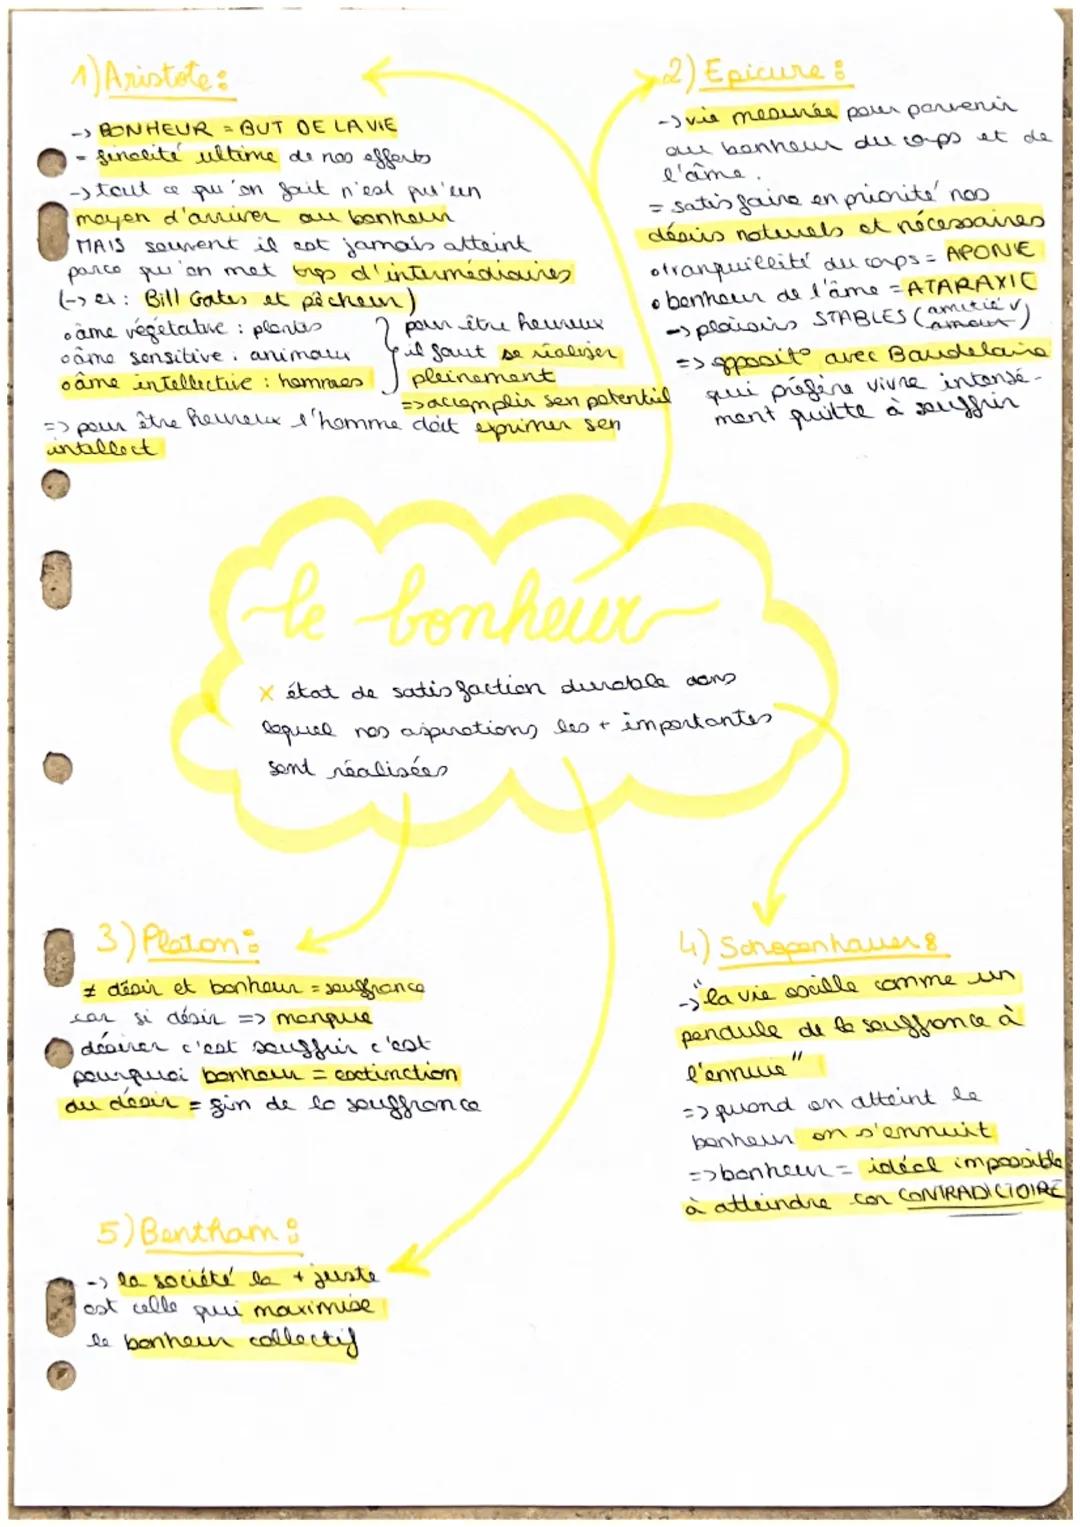 1) Aristote :
-> BONHEUR = BUT DE LA VIE
= finalité ultime de nos efforts
-> tout ce qu'on fait n'est qu'un
moyen d'arriver au bonheur
MAIS souvent il est jamais atteint
parce qu'on met trop d'intermédiaires
(-> ex : Bill Gates et pêcheur)
o âme végétative : plantes
o âme sensitive : animaux
o âme intellective : hommes
pour être heureux
il faut se réaliser
pleinement
=> accomplir son potentiel
=> pour être heureux l'homme doit exprimer son
intellect
2) Epicure :
-> vie mesurée pour parvenir
au bonheur du corps et de
l'âme.
= satisfaire en priorité nos
désirs naturels et nécessaires
o tranquillité du corps = APONIE
o bonheur de l'âme = ATARAXIE
-> plaisirs STABLES (amitié v
amour)
=> opposit° avec Baudelaire
qui préfère vivre intensé-
ment quitte à souffrir
le bonheur
x état de satisfaction durable dans
lequel nos aspirations les + importantes
sont réalisées
3) Platon :
≠ désir et bonheur = souffrance
car si désir => manque
désirer c'est souffrir c'est
pourquoi bonheur = extinction
du désir = fin de la souffrance
4) Schopenhauer :
-> "la vie oscille comme un
pendule de la souffrance à
l'ennuie"
=> quand on atteint le
bonheur on s'ennuit
=> bonheur = idéal impossible
à atteindre car CONTRADICTOIRE
5) Bentham :
-> la société la + juste
est celle qui maximise
le bonheur collectif